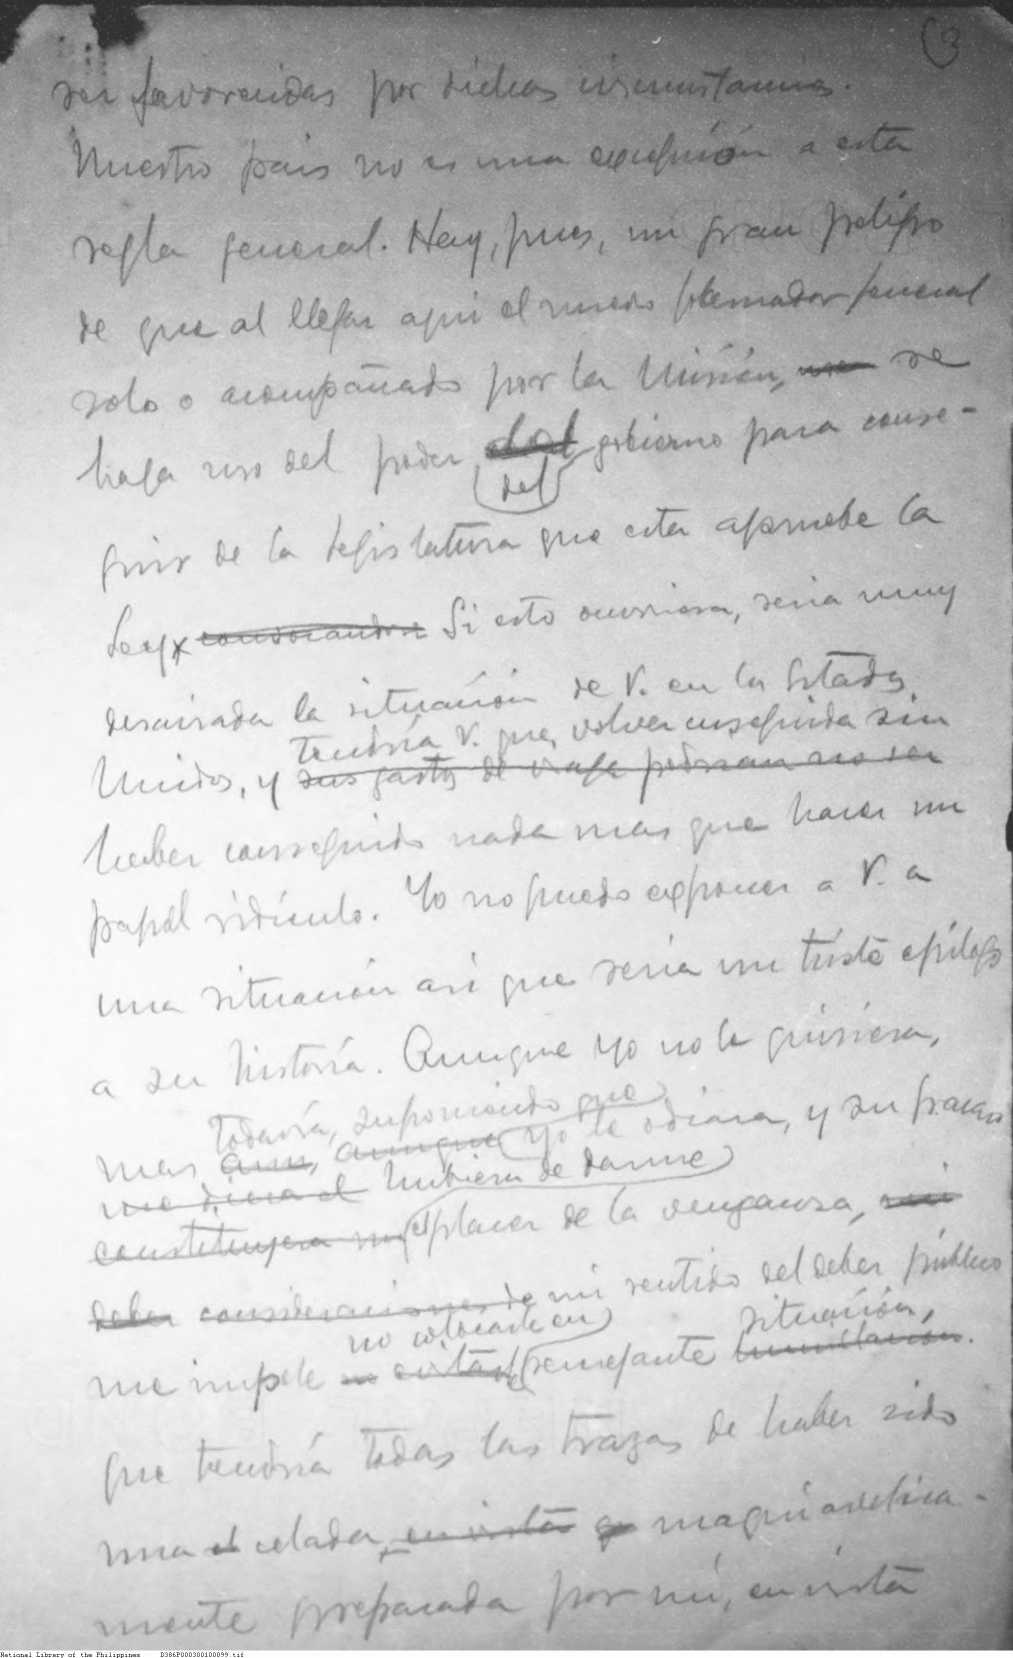 (3
ser favorecidas por dichas circunstancias.
Nuestro pais no es una excepción a esta
regla general. Hay, pues, un gran peligro
de que al llegar aqui el nuevo gobernador general
solo o acompañado por la Misión, se
haga uso del poder del gobierno para conse-
guir de la Legislatura que esta apruebe la
Ley. convocandose Si esto ocurriera, seria muy
desairada la situación de V. en los Estados
tendría V. que volver enseguida sin
Unidos, y sus gastos de viaje podrian no ser
haber conseguido nada mas que hacer un
papel ridículo. Yo no puedo exponer a V. a
una situación asi que seria un triste epílogo
a su historia. Aunque yo no lo quisiera,
todavía, suponiendo que
mas aun, aunque yo le odiara, y su fracaso
me diera el hubiera de darme
constituyera mi el placer de la venganza, mi
deber consideraciones de mi sentido del deber público
no colocarle en situación,
me impele semejante humillación.
que tendría todas las trazas de haber sido
una celada, en vista q maquiavelica-
mente preparada por mi, en vista
National Library of the Philippines D386P000300100099.tif